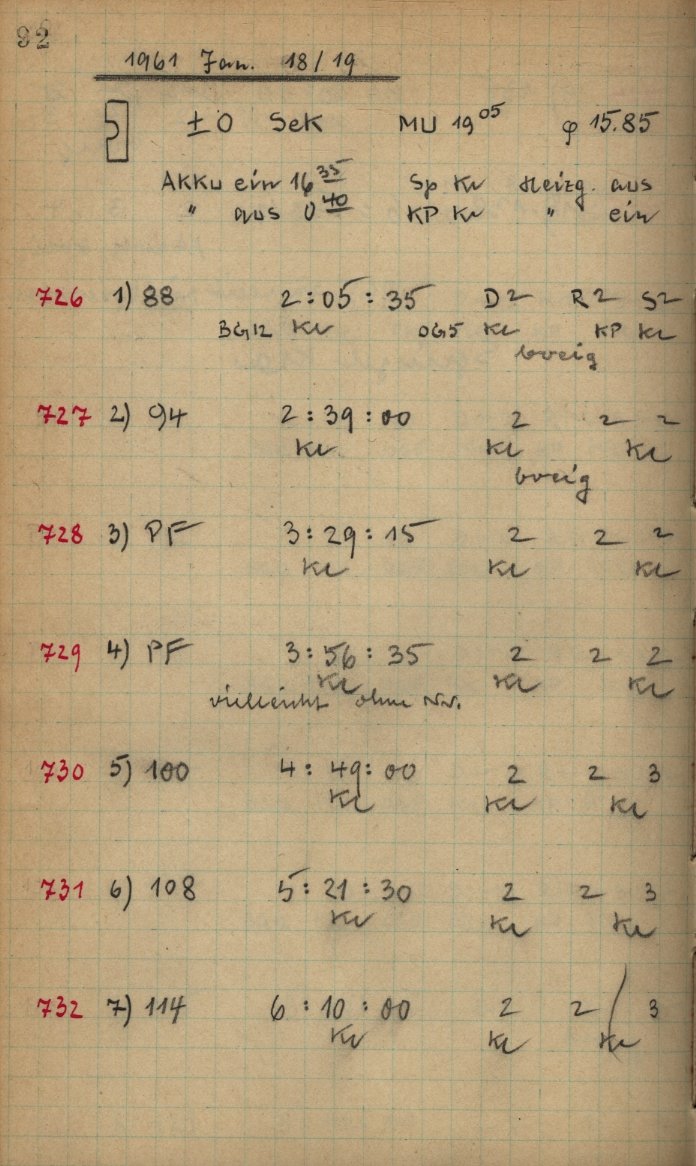 92
1961 Jan. 18/19
±0 Sek MU 19⁰⁵ φ 15.85
Akku ein 16³⁵ Sp Kr Heizg. aus
" aus 0⁴⁰ KP Kr " ein
726 1) 88 2:05:35 D2 R2 S2
BG12 Kr OG5 Kr KP Kr
boeig
727 2) 94 2:39:00 2 2 2
Kr Kr Kr
boeig
728 3) PF 3:29:15 2 2 2
Kr Kr Kr
729 4) PF 3:56:35 2 2 2
Kr Kr Kr
vielleicht ohne
730 5) 100 4:49:00 2 2 3
Kr Kr Kr
731 6) 108 5:21:30 2 2 3
Kr Kr Kr
732 7) 114 6:10:00 2 2 3
Kr Kr Kr